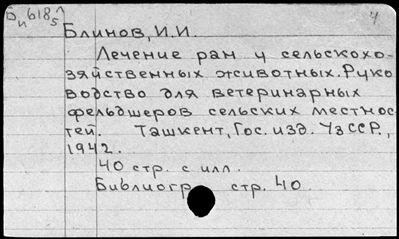 Dи618^5 4
Блинов, И.И.
Лечение ран у сельскохо-
зяйственных животных. Руко
водство для ветеринарных
фельдшеров сельских местнос-
тей. Ташкент, Гос. изд. УзССР,
1942.
40 стр. с илл.
Библиогр стр. 40.